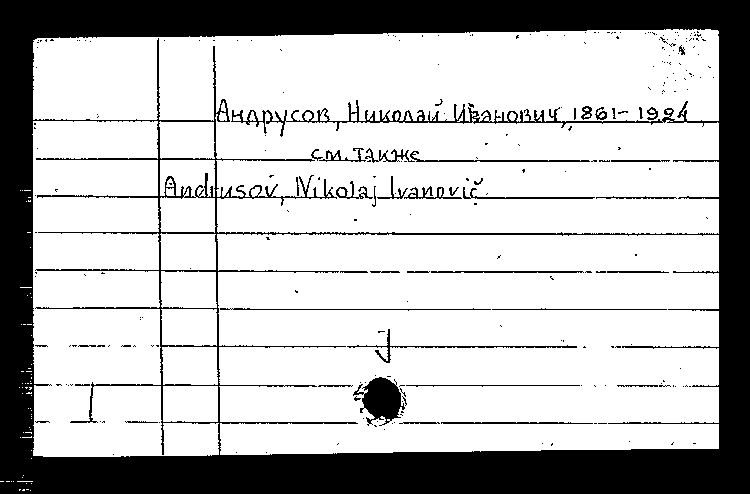 Андрусов, Николай Иванович, 1861-1924
см. также
Andrusov, Nikolaj Ivanovič
J